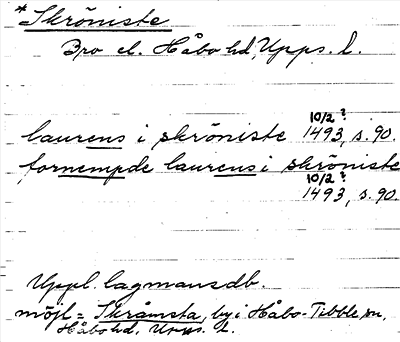 *Skröniste
Bro el. Håbo hd, Upps. l.
10/2 ?
laurens i skröniste 1493, s. 90.
fornempde laurens i skröniste
10/2 ?
1493, s. 90.
Uppl. lagmansdb.
möjl = Skråmsta, by i Håbo-Tibble sn,
Håbo hd, Upps. l.